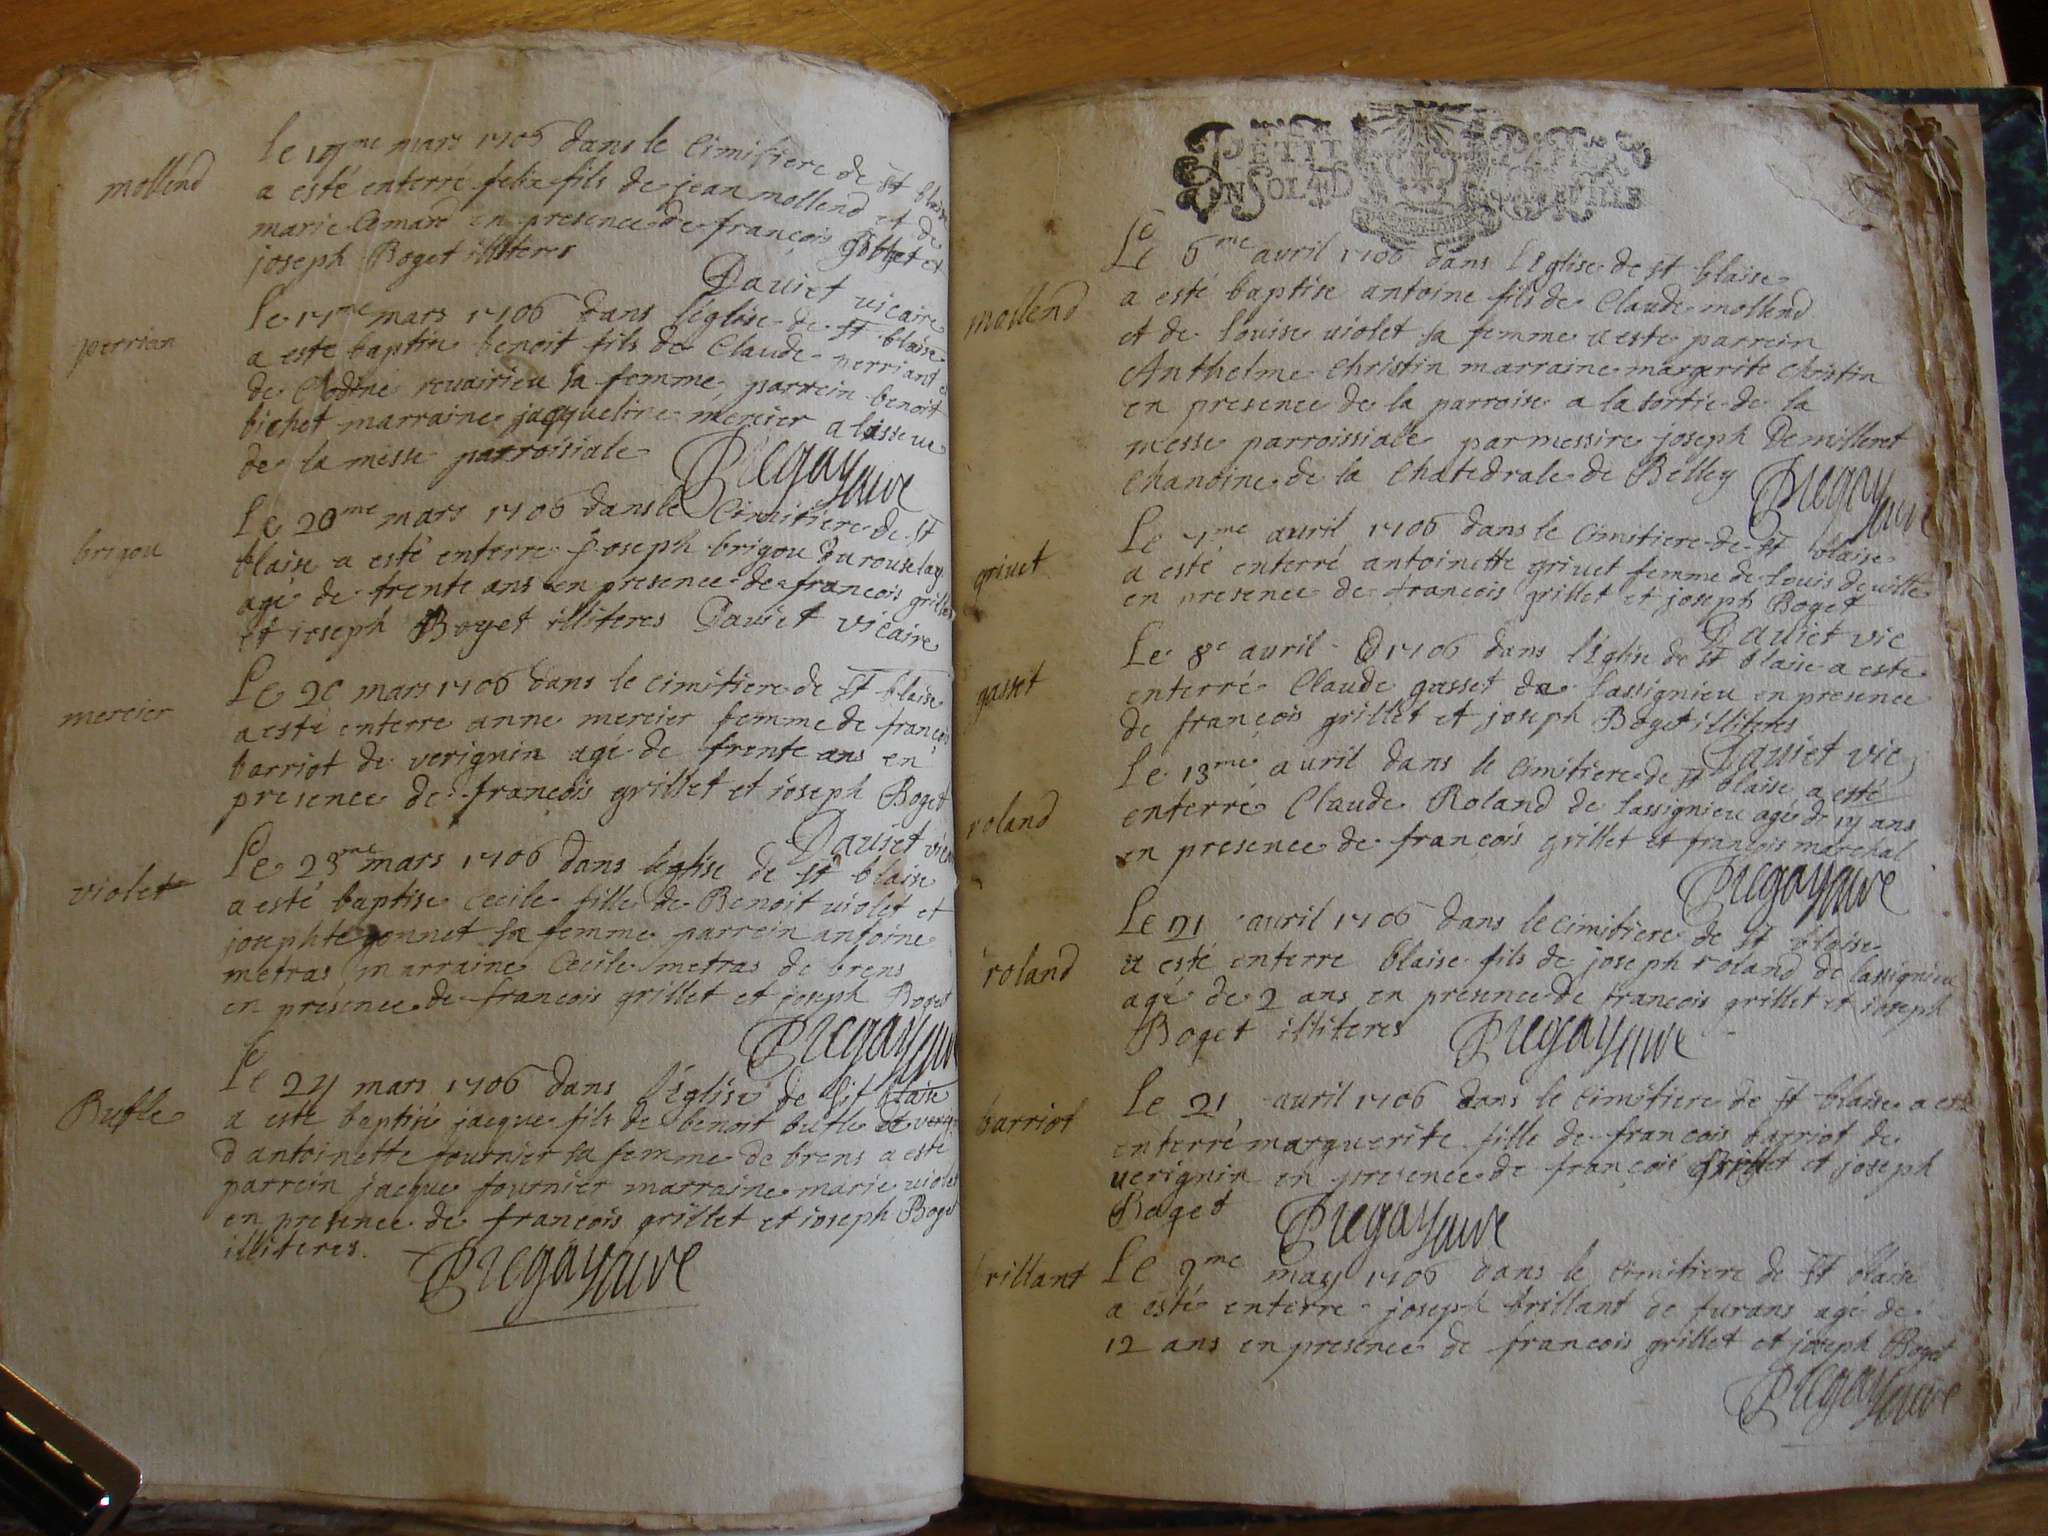 mollend
Le 17me mars 1706 dans le Cimitiere de St blaise
a esté enterré felix fils de jean mollend et de
marie Camard en presence de françois grillet et
joseph Boget illiteres
Daviet vicaire
perrian
Le 17me mars 1706 dans leglise de St blaise
a este baptise benoit fils de Claude perriant et
de Clodine sa femme, parrein benoit
bichet marraine jacqueline mercier a lissue
de la messe parroisiale
Pregay cure
brigou
Le 20me mars 1706 dans le Cimitiere de St
blaise a esté enterre joseph brigou du rouselay
agé de trente ans en presence de francois grillet
et joseph Boget illiteres Daviet vicaire
mercier
Le 20 mars 1706 dans le cimitiere de St blaise
a esté enterre anne mercier femme de françois
barriot de verignin agé de trente ans en
presence de françois grillet et joseph Boget
Daviet vic
violet
Le 23me mars 1706 dans leglise de St blaise
a esté baptise Cecile fille de Benoit violet et
josephte gonnet sa femme parrein antoine
metras marraine Cecile metras de brens
en presence de francois grillet et joseph Boget
Pregay cure
Bufle
Le 24 mars 1706 dans l'Eglise de St blaise
a este baptisé jacque fils de benoit bufle et
d antoinette fournier sa femme de brens a este
parrein jacque fournier marraine marie violet
en presence de francois grillet et joseph Boget
illiteres.
Pregay cure
PETIT PAPIER
UN SOL 4 D
mollend
Le 6me avril 1706 dans l'Eglise de st blaise
a esté baptise antoine fils de Claude mollend
et de louise violet sa femme a este parrein
Anthelme Christin marraine margerite Christin
en presence de la parroise a la sortie de la
messe parroissiale par messire joseph Demilleret
Chanoine de la Chatedrale de Belley
Pregay cure
grivet
Le 7me avril 1706 dans le Cimitiere de St blaise
a esté enterré antoinette grivet femme de louis deville
en presence de francois grillet et joseph Boget
Daviet vic
gasset
Le 8e avril 1706 dans l'Eglise de St blaise a este
enterré Claude gasset de lassignieu en presence
de françois grillet et joseph Boget illiteres
Daviet vic
roland
Le 13me avril dans le cimitiere de St blaise a esté
enterré Claude Roland de lassignieu agé de 17 ans
en presence de françois grillet et françois marechal
Pregay cure
roland
Le 21 avril 1706 dans le cimitiere de St blaise
a esté enterre blaise fils de joseph roland de lassignieu
agé de 2 ans en presence de francois grillet et joseph
Boget illiteres Pregay cure
barriot
Le 21 avril 1706 dans le Cimitiere de St blaise a esté
enterré marguerite fille de francois barriot de
verignin en presence de françois Grillet et joseph
Boget Pregay cure
brillant
Le 9me may 1706 dans le Cimitiere de St blaise
a esté enterre joseph brillant de furans agé de
12 ans en presence de francois grillet et joseph Boget
Pregay cure